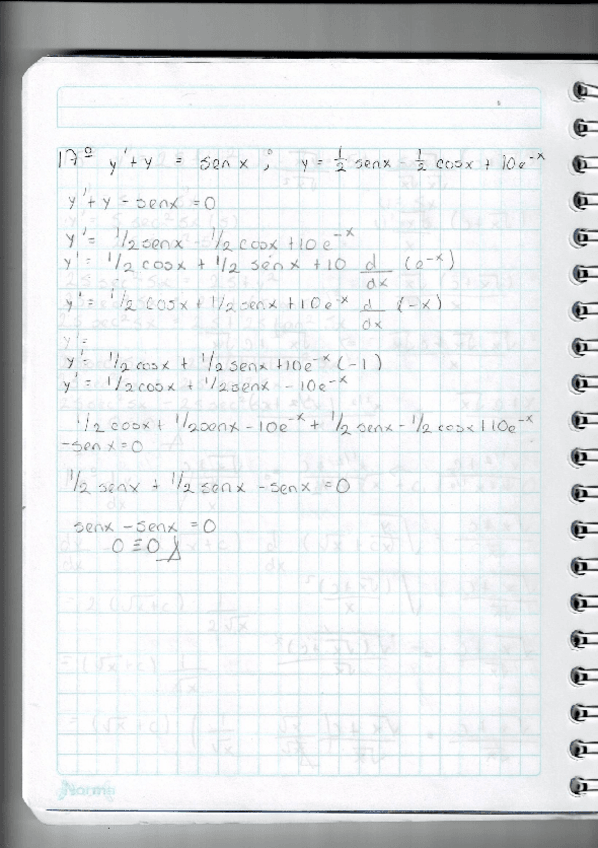 17º y'+y = senx ; y = 1/2 senx - 1/2 cosx + 10e^-x
y'+y-senx=0
y'= 1/2senx 1/2 cosx +10e^-x
y'= 1/2 cosx + 1/2 senx +10 d/dx (e^-x)
y'= 1/2 cosx + 1/2 senx +10e^-x d/dx (-x)
y'=
y'= 1/2cosx + 1/2senx +10e^-x (-1)
y'= 1/2cosx + 1/2senx -10e^-x
1/2 cosx + 1/2senx -10e^-x + 1/2 senx - 1/2 cosx +10e^-x
-senx=0
1/2 senx + 1/2 senx -senx =0
senx -senx =0
0≡0
Norma